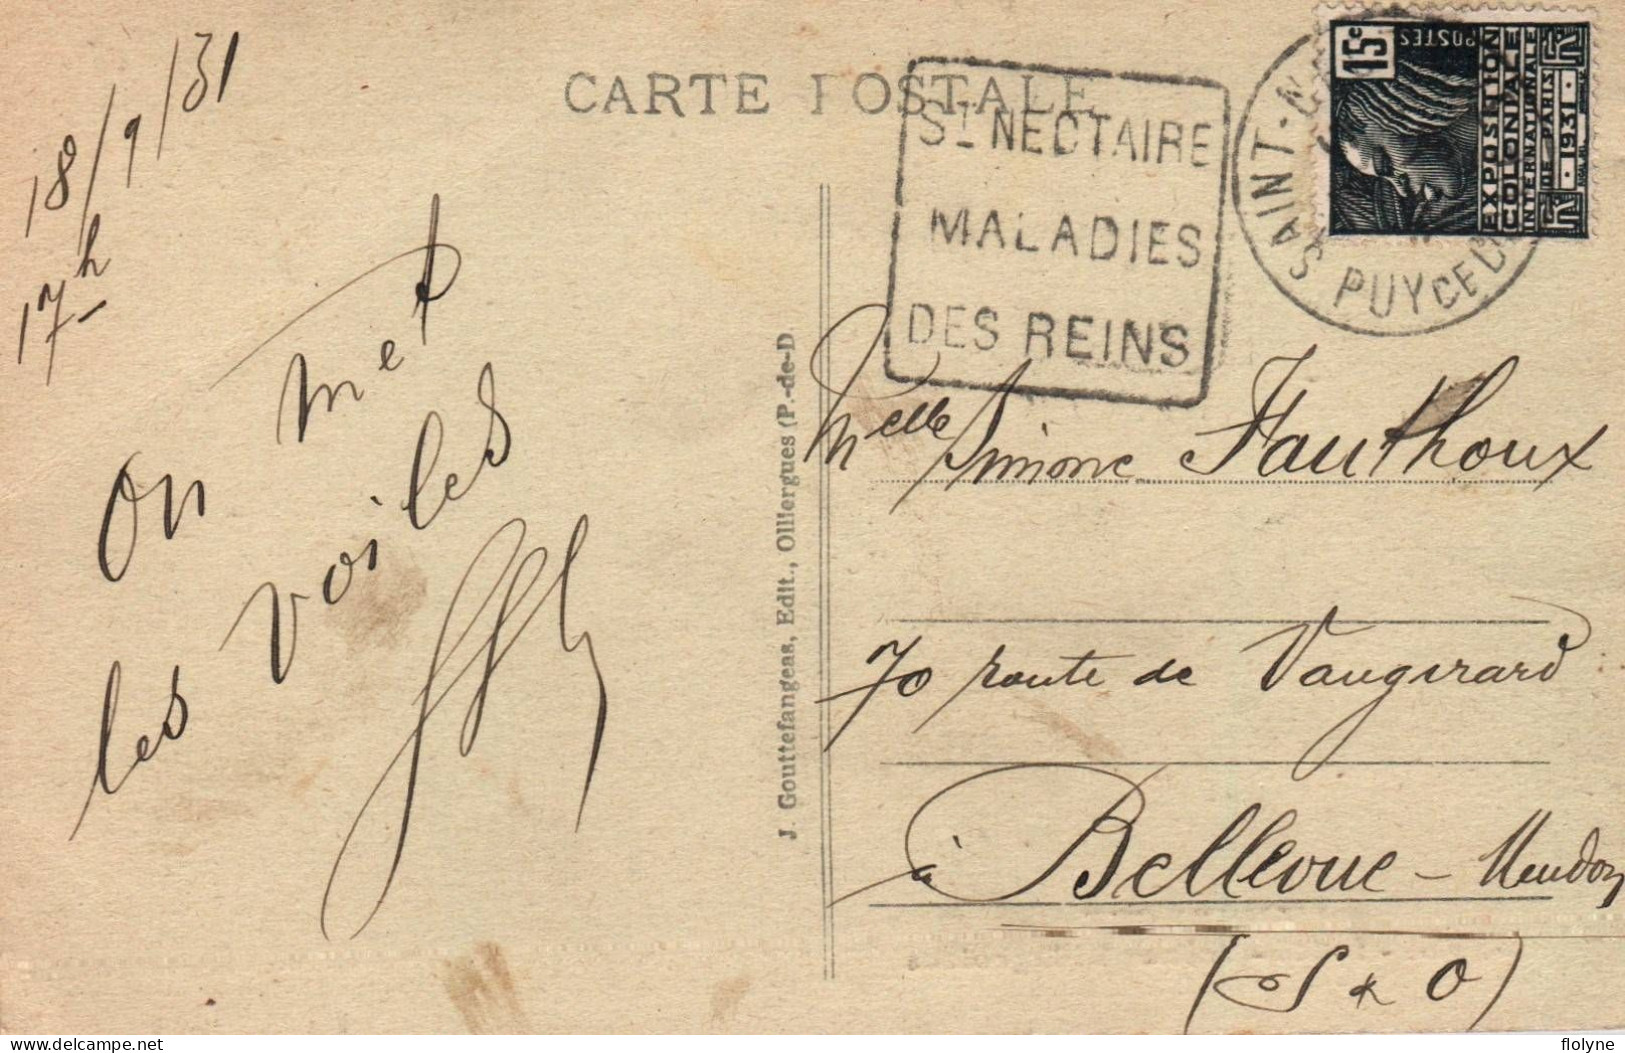 18/9/31
17h
On met
les voiles
CARTE POSTALE
J. Gouttefangeas, Edit., Olliergues (P.-de-D
ST NECTAIRE
MALADIES
DES REINS
SAINT-N
PUY CE D
15c
POSTES
EXPOSITION
COLONIALE
INTERNATIONALE
DE PARIS
1931
Melle Simone Fauthoux
70 route de Vaugirard
à Bellevue - Meudon
(S & O)
delcampe.net
flolyne